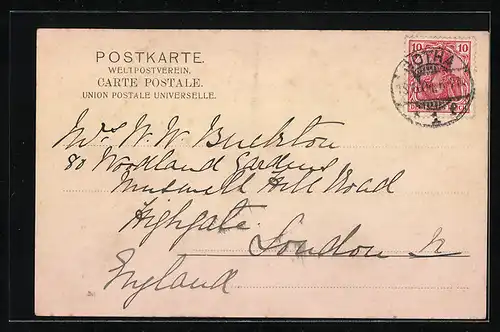 POSTKARTE.
WELTPOSTVEREIN.
CARTE POSTALE.
UNION POSTALE UNIVERSELLE.
10 10
GOTHA
Mrs W. W. Buckton
80 Woodland Gardens
Muswell Hill Road
Highgate
London N
England